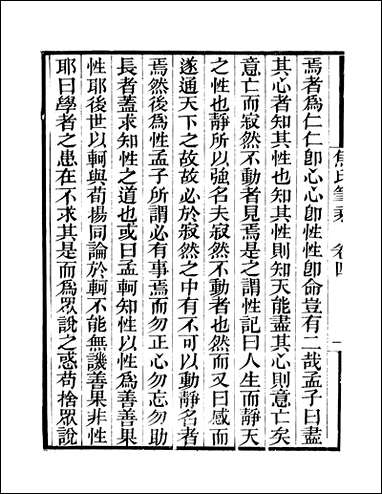 焦氏筆乘 卷四 一
焉者為仁仁卽心心卽性性卽命豈有二哉孟子曰盡
其心者知其性也知其性則知天能盡其心則意亡矣
意亡而寂然不動者見焉是之謂性記曰人生而靜天
之性也靜所以強名夫寂然不動者也然而又曰感而
遂通天下之故故必於寂然之中有不可以動靜名者
焉然後為性孟子所謂必有事焉而勿正心勿忘勿助
長者蓋求知性之道也或曰孟軻知性以性為善善果
性耶後世以軻與荀揚同論於軻不能無譏善果非性
耶曰學者之患在不求其是而為眾說之惑苟捨眾說